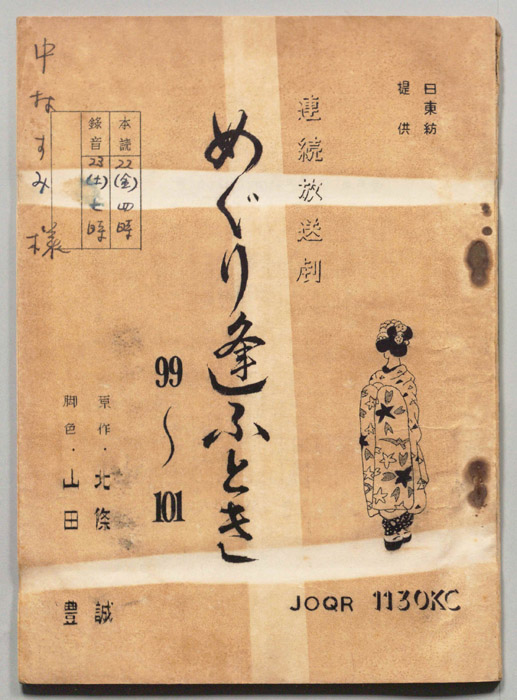 日東紡
提供
連続放送劇
めぐり逢ふとき
99〜101
原作・北條 誠
脚色・山田 豊
本読 22(金)四時
録音 23(土)七時
中村すみ様
JOQR 1130KC